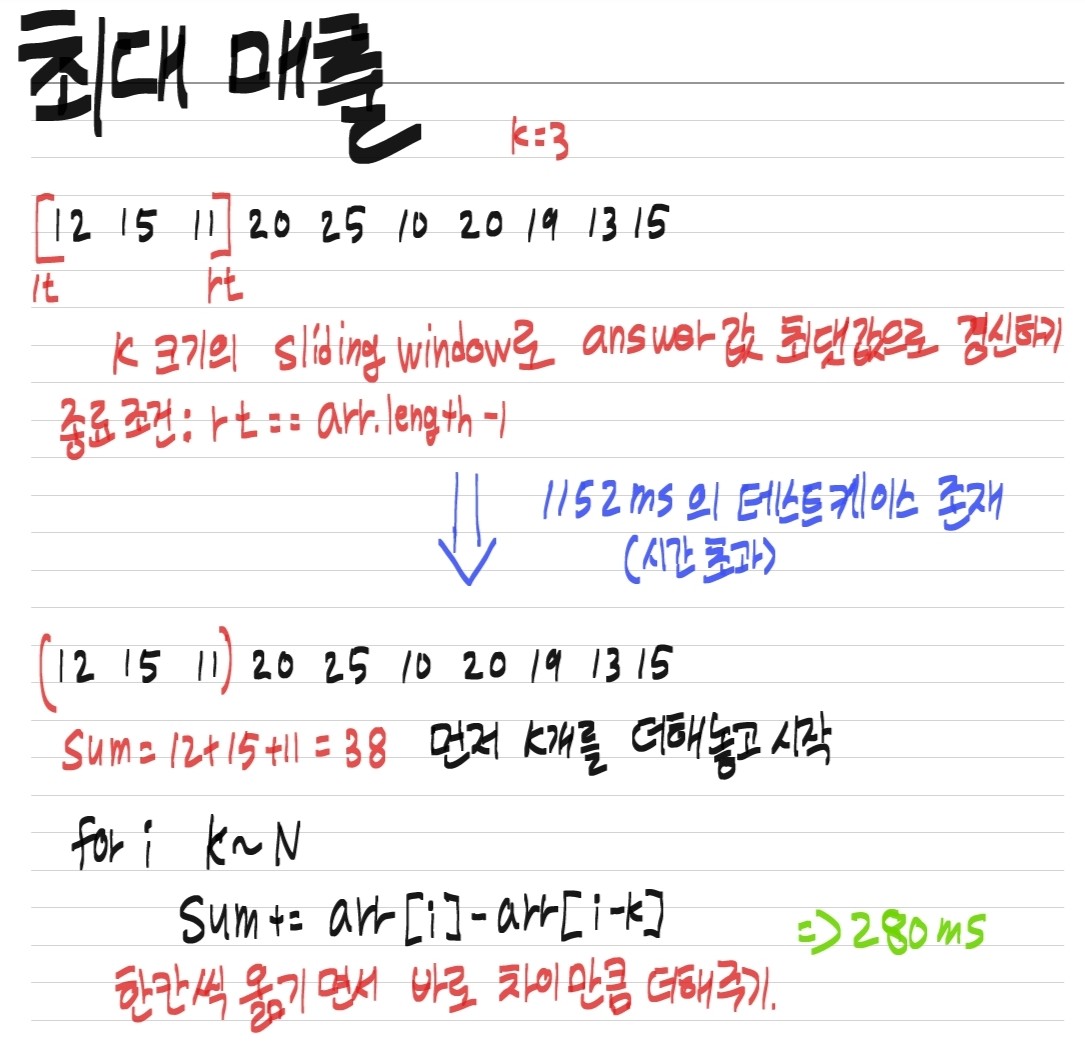 최대 매출
k=3
[12 15 11] 20 25 10 20 19 13 15
lt rt
K 크기의 sliding window로 answer 값 최댓값으로 갱신하기
종료 조건: rt == arr.length-1
1152ms 의 테스트케이스 존재
(시간 초과)
(12 15 11) 20 25 10 20 19 13 15
Sum = 12+15+11 = 38 먼저 K개를 더해놓고 시작
for i k~N
Sum += arr[i]-arr[i-k] => 280ms
한칸씩 옮기면서 바로 차이만큼 더해주기.